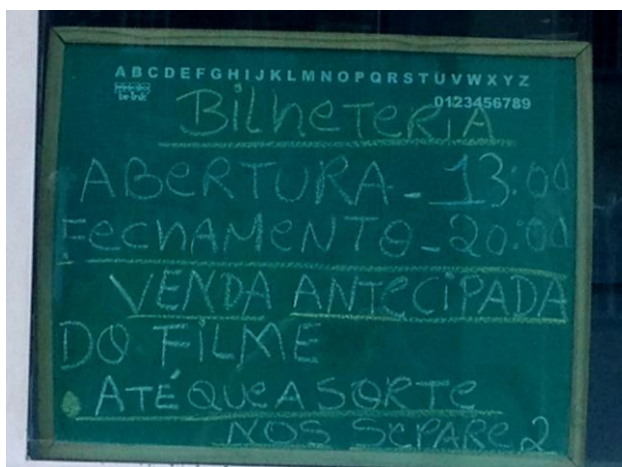 ABCDEFGHIJKLMNOPQRSTUVWXYZ
0123456789
BILHETERIA
ABERTURA - 13:00
FECHAMENTO - 20:00
VENDA ANTECIPADA
DO FILME
ATÉ QUE A SORTE
NOS SEPARE 2